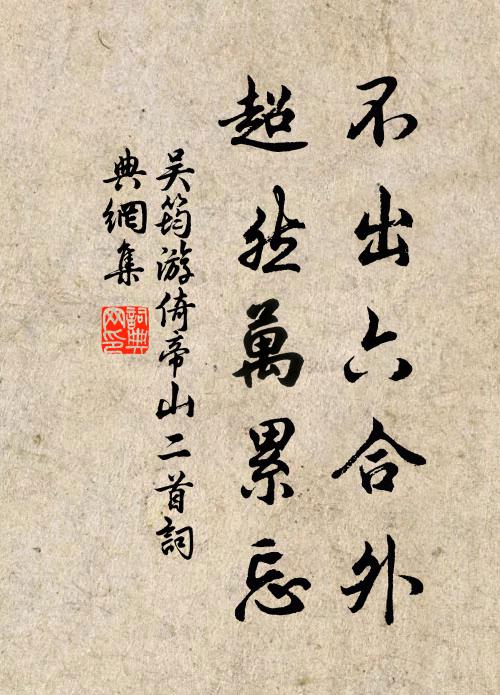 不出六合外
超然萬累忘
吴筠游倚帝山二首詞
典網集
詞典
网印